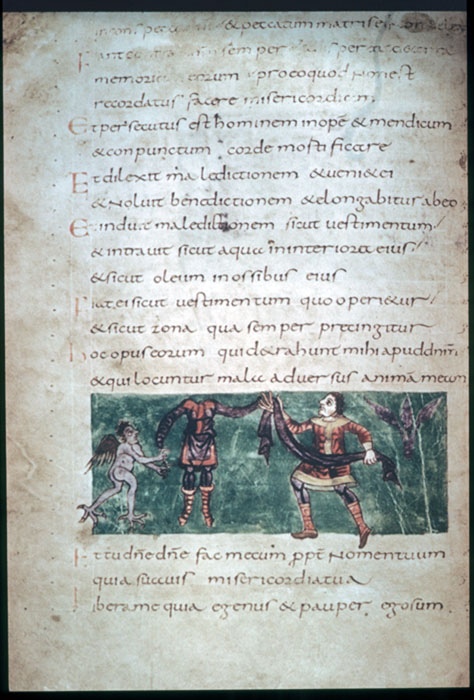 in conspectu & peccatum matris
semper
memoria eorum pro eo quod Non est
recordatus facere misericordiam
Et persecutus est hominem inopē & mendicum
& conpunctum corde mortificare
Et dilexit maledictionem & ueni& ei
& Noluit benedictionem & elongabitur abeo
Et induit maledictionem sicut uestimentum
& intrauit sicut aqua in interiora eius
& sicut oleum in ossibus eius
Fiat ei sicut uestimentum quo operi&ur
& sicut zona qua semper precingitur
Hoc opus eorum qui d&rahunt mihi apud dnm̄
& qui locuntur mala aduersus animā meam
Et tu dn̄e dn̄e fac mecum ꝓpt̄ Nomen tuum
quia suauis misericordia tua
Libera me quia egenus & pauper ego sum